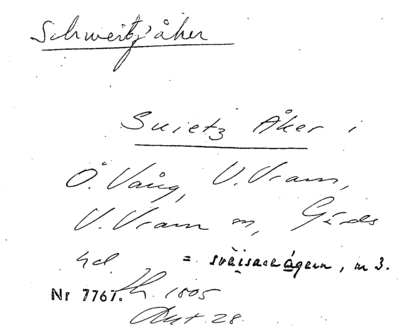 Schweitz'åker
Svietz Åker i
Ö. Vång, V. Vram,
V. Vram sn, Gärds
hd. = svèisaceágern, m 3.
Nr 7767. Sk. 1805
Akt 28.